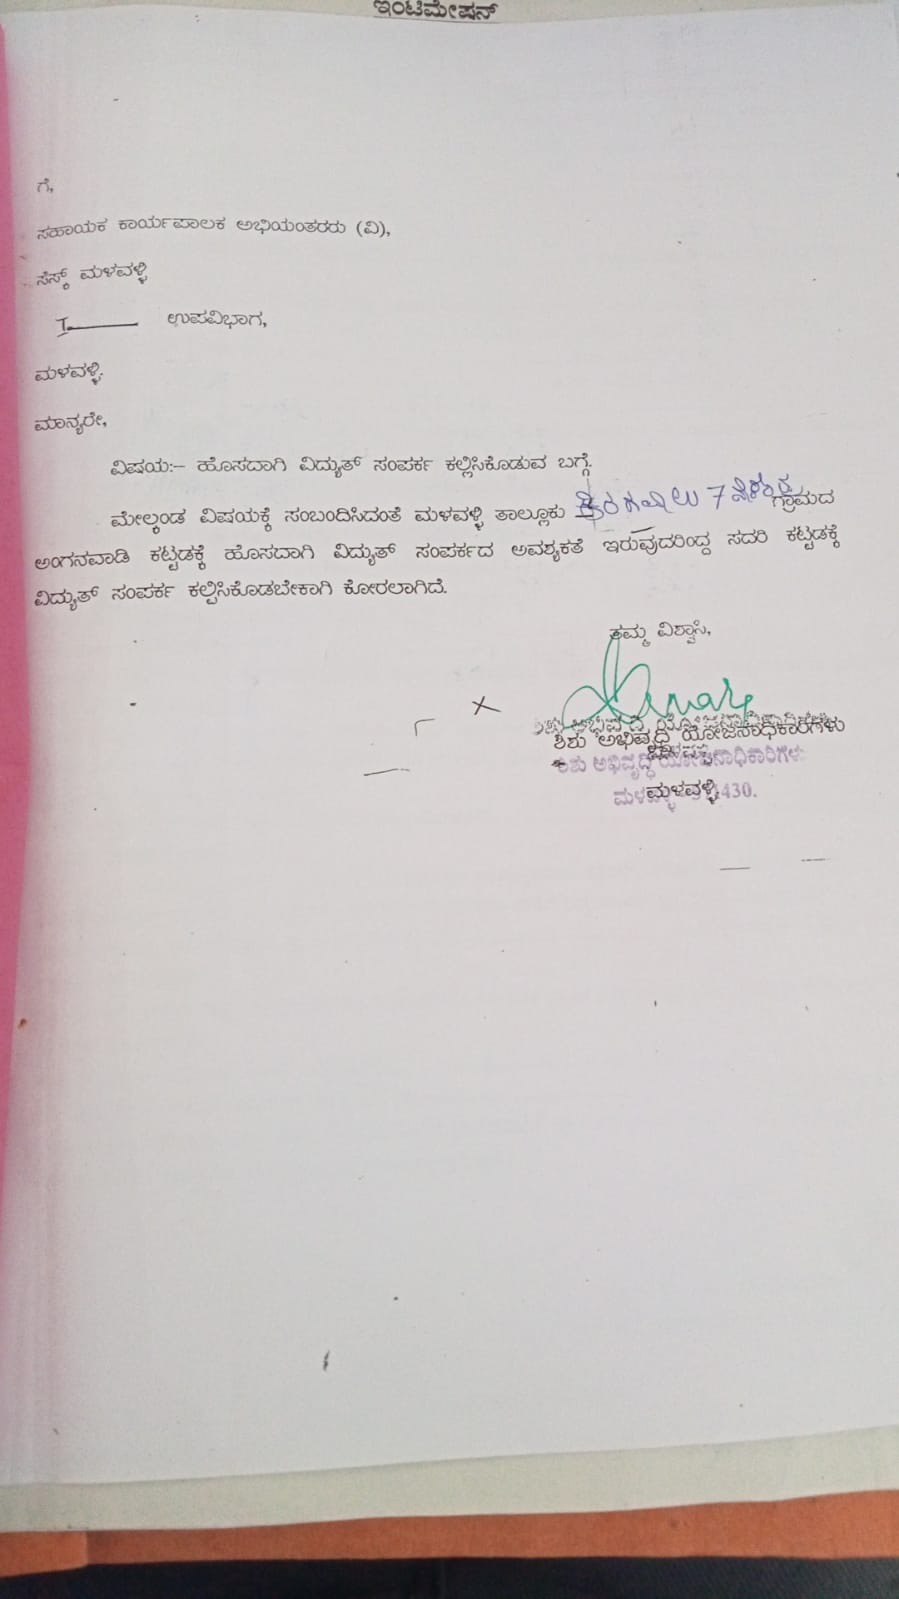 ಇಂಟಿಮೇಷನ್
ಗೆ,
ಸಹಾಯಕ ಕಾರ್ಯಪಾಲಕ ಅಭಿಯಂತರರು (ವಿ),
ಸೆಸ್ಕ್ ಮಳವಳ್ಳಿ
I ಉಪವಿಭಾಗ,
ಮಳವಳ್ಳಿ.
ಮಾನ್ಯರೇ,
ವಿಷಯ:– ಹೊಸದಾಗಿ ವಿದ್ಯುತ್ ಸಂಪರ್ಕ ಕಲ್ಪಿಸಿಕೊಡುವ ಬಗ್ಗೆ.
ಮೇಲ್ಕಂಡ ವಿಷಯಕ್ಕೆ ಸಂಬಂದಿಸಿದಂತೆ ಮಳವಳ್ಳಿ ತಾಲ್ಲೂಕು 7 ಗ್ರಾಮದ
ಅಂಗನವಾಡಿ ಕಟ್ಟಡಕ್ಕೆ ಹೊಸದಾಗಿ ವಿದ್ಯುತ್ ಸಂಪರ್ಕದ ಅವಶ್ಯಕತೆ ಇರುವುದರಿಂದ್ದ ಸದರಿ ಕಟ್ಟಡಕ್ಕೆ
ವಿದ್ಯುತ್ ಸಂಪರ್ಕ ಕಲ್ಪಿಸಿಕೊಡಬೇಕಾಗಿ ಕೋರಲಾಗಿದೆ.
ತಮ್ಮ ವಿಶ್ವಾಸಿ,
ಶಿಶು ಅಭಿವೃದ್ಧಿ ಯೋಜನಾಧಿಕಾರಿಗಳು
ಶಿಶು ಅಭಿವೃದ್ಧಿ ಯೋಜನಾಧಿಕಾರಿಗಳು
ಮಳವಳ್ಳಿ. 430.